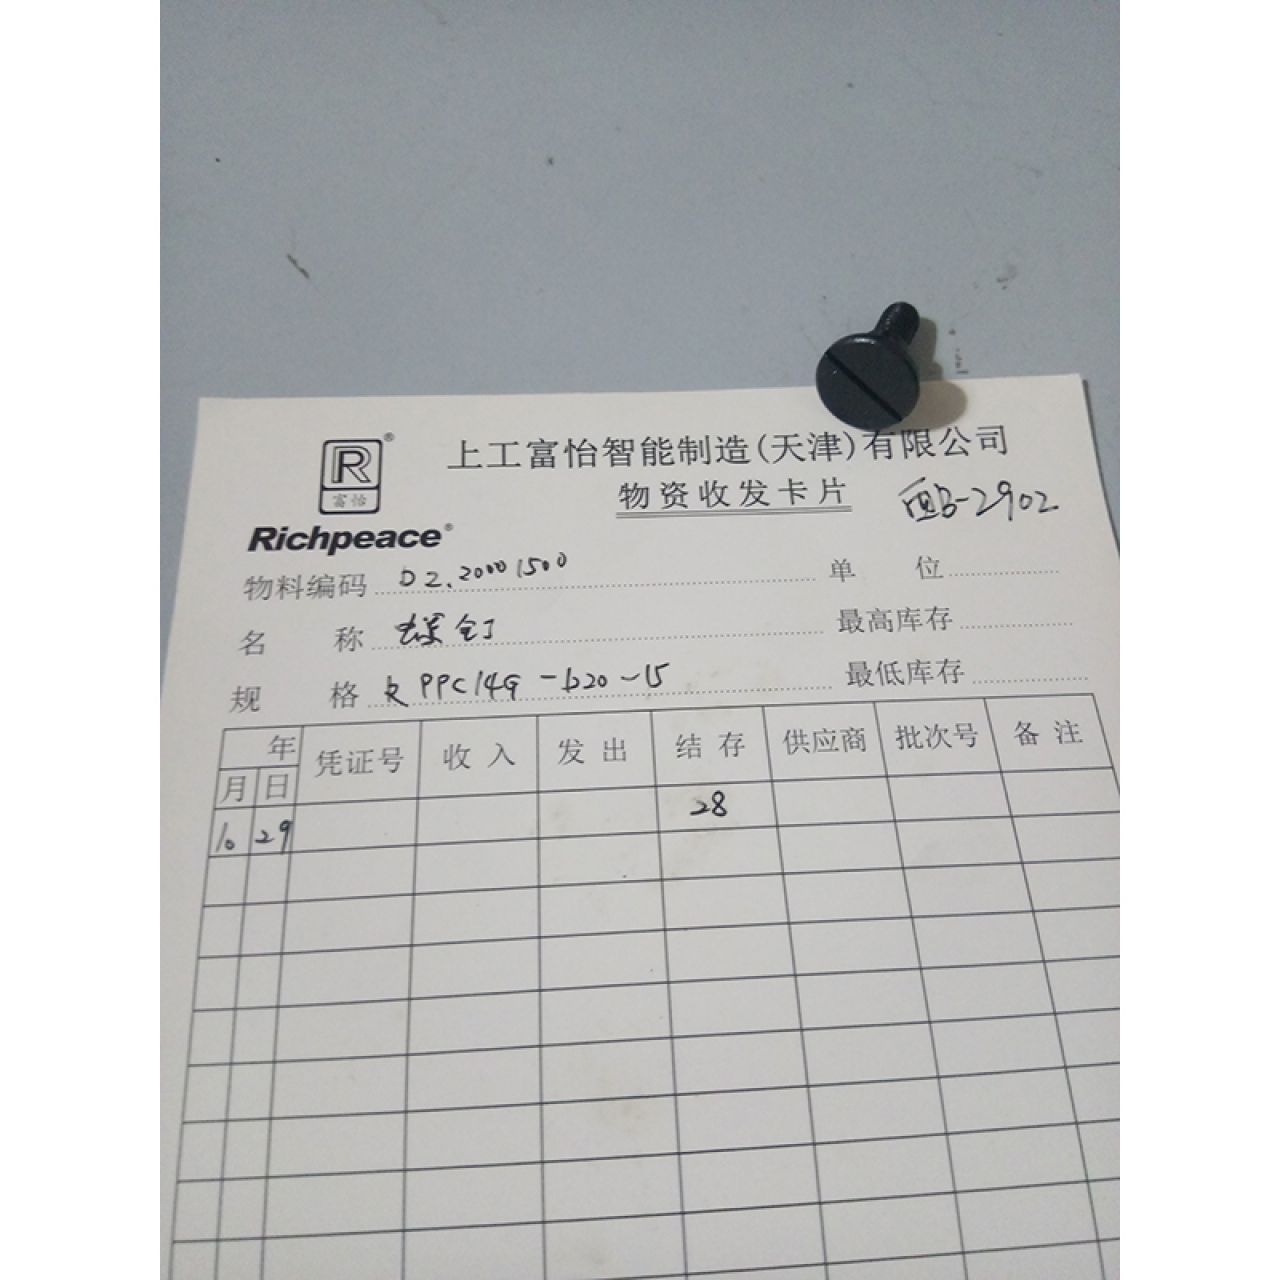 R®
富怡
Richpeace®
上工富怡智能制造(天津)有限公司
物资收发卡片
-2902
物料编码 DZ.20001500 单 位
名 称 螺钉 最高库存
规 格 RPPC14G-b20-15 最低库存
年 凭证号 收入 发出 结存 供应商 批次号 备注
月 日
10 29 28